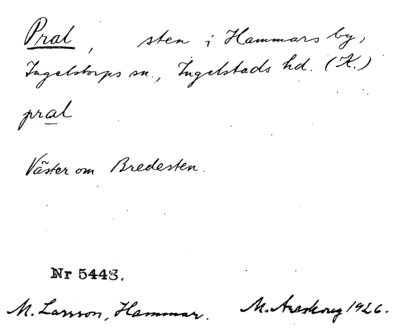 Pral, sten i Hammars by,
Ingelstorps sn., Ingelstads hd. (K.)
pral
Väster om Bredesten.
Nr 5443.
M. Larsson, Hammar. M. Areskoug 1926.